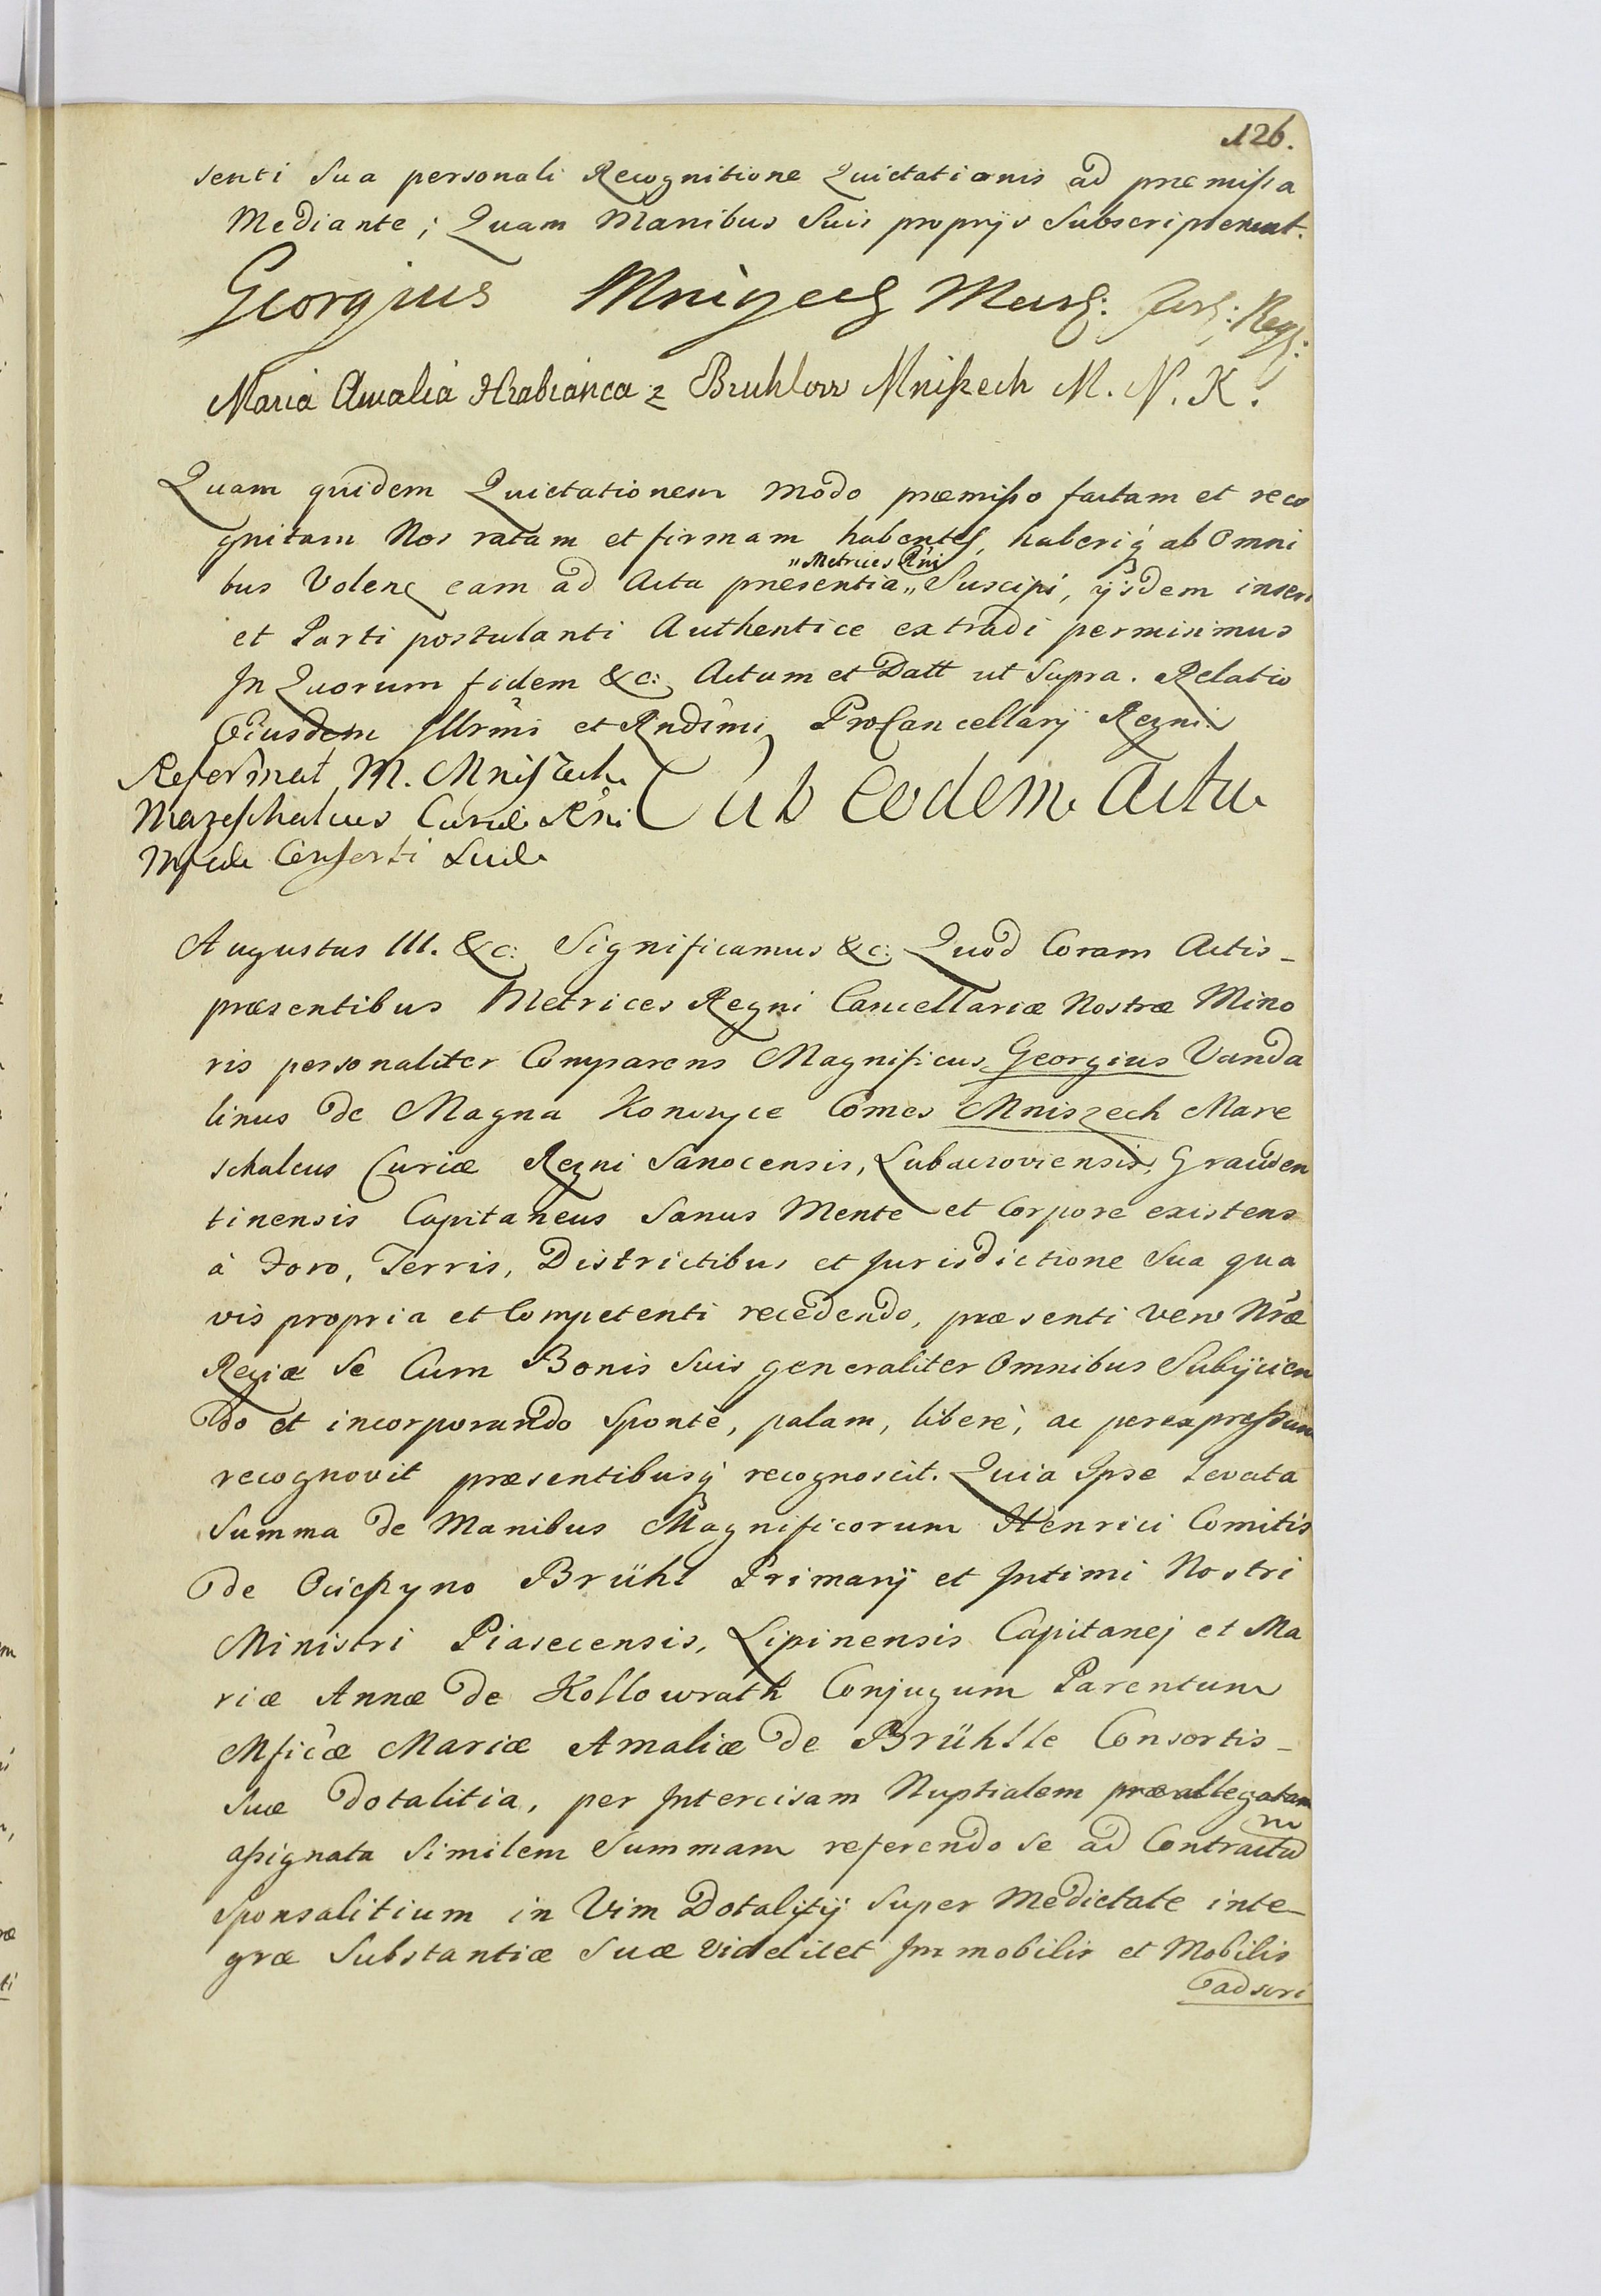 126.
senti Sua personali Recognitione Quietationis ad præmissa
Mediante; Quam Manibus Suis proprijs Subscripserunt.
Georgius Mniszech Marsz:
Maria Amalia Hrabianca z Bruhlow Mniszech M. N. K.
Quam quidem Quietationem modo præmisso factam et reco
gnitam Nos ratam et firmam habentes, haberiq́ ab Omni
„Metrices Rńi
bus Volentes eam ad Acta præsentia „ Suscipi, ijsdem inseri
et Parti postulanti Authentice extradi permisimus
In Quorum fidem &c: Actum et Datt ut Supra. Relatio
Eiusdem Illrmi et Rndimi ProCancellarij Regni.
Reformat M. Mniszech
Sub Eodem Actu
Mareschalcus Curiæ Rńi
Mfcæ Consorti Suæ
Augustus III. &c: Significamus &c: Quod Coram Actis
præsentibus Metrices Regni Cancellariæ Nostræ Mino
ris personaliter Comparens Magnificus Georgius Vanda
linus de Magna Konczyce Comes Mniszech Mare
schalcus Curiæ Regni Sanocensis, Lubaczoviensis, Grauden
tinensis Capitaneus Sanus Mente et Corpore existens
à Foro, Terris, Districtibus et Jurisdictione Sua qua
vis propria et Competenti recedendo, præsenti vero Nræ
Regiæ Se Cum Bonis Suis generaliter Omnibus Subijcien
do et incorporando Sponte, palam, liberè, ac per expressum
recognovit præsentibusq́ recognoscit. Quia Ipse levata
Summa de Manibus Magnificorum Henrici Comitis
de Ocieszyno Brühl Primarij et Intimi Nostri
Ministri Piasecensis, Lipinensis Capitanej et Ma
riæ Annæ de Kollowrath Conjugum Parentum
Mficæ Mariæ Amaliæ de Brühlle Consortis
Suæ dotalitia, per Intercisam Nuptialem præallegatam
assignata Similem Summam referendo Se ad Contractum
Sponsalitium in Vim Dotalitij Super Medietate inte-
græ Substantiæ Suæ videlicet Immobilis et Mobilis
adscri